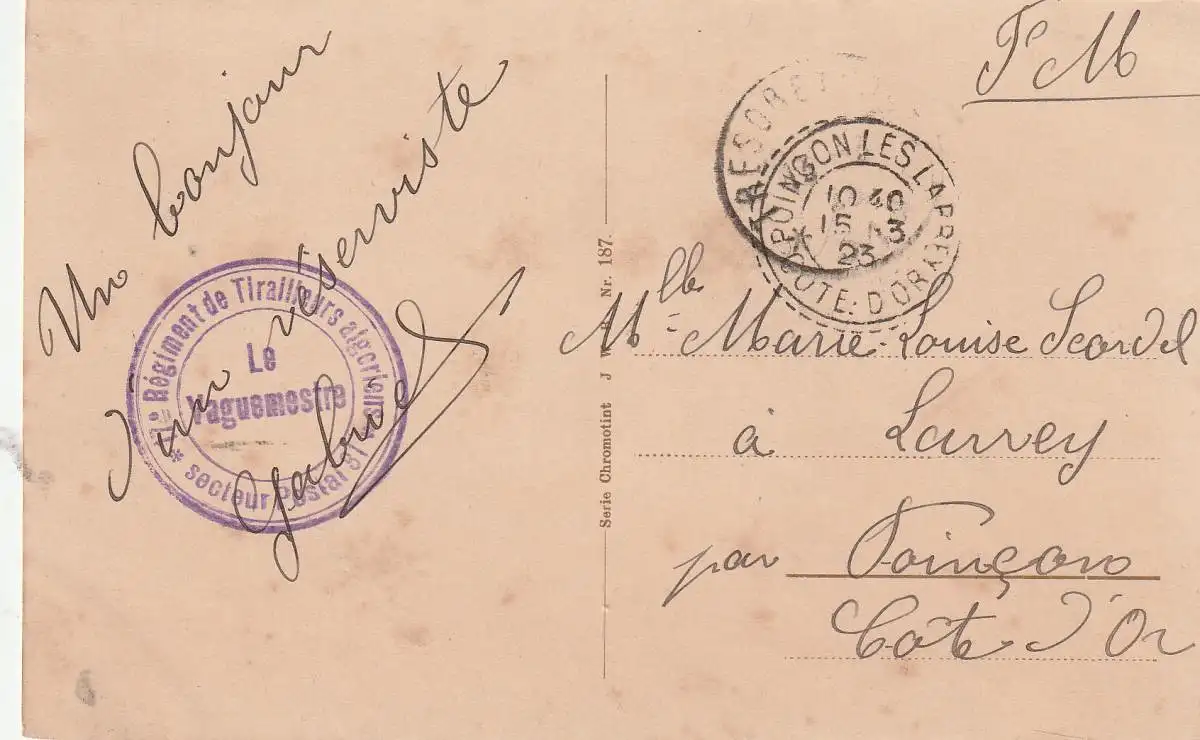 Un bonjour
d'un réserviste
Gabriel
Régiment de Tirailleurs algériens
Le
Vaguemestre
* Secteur Postal
Serie Chromotint J W Nr. 187.
F M
TRESOR ET
POINÇON LES LARREY
10 40
15
23
COTE D'OR
Mlle Marie-Louise
à Larrey
par Poinçon
Côte d'Or